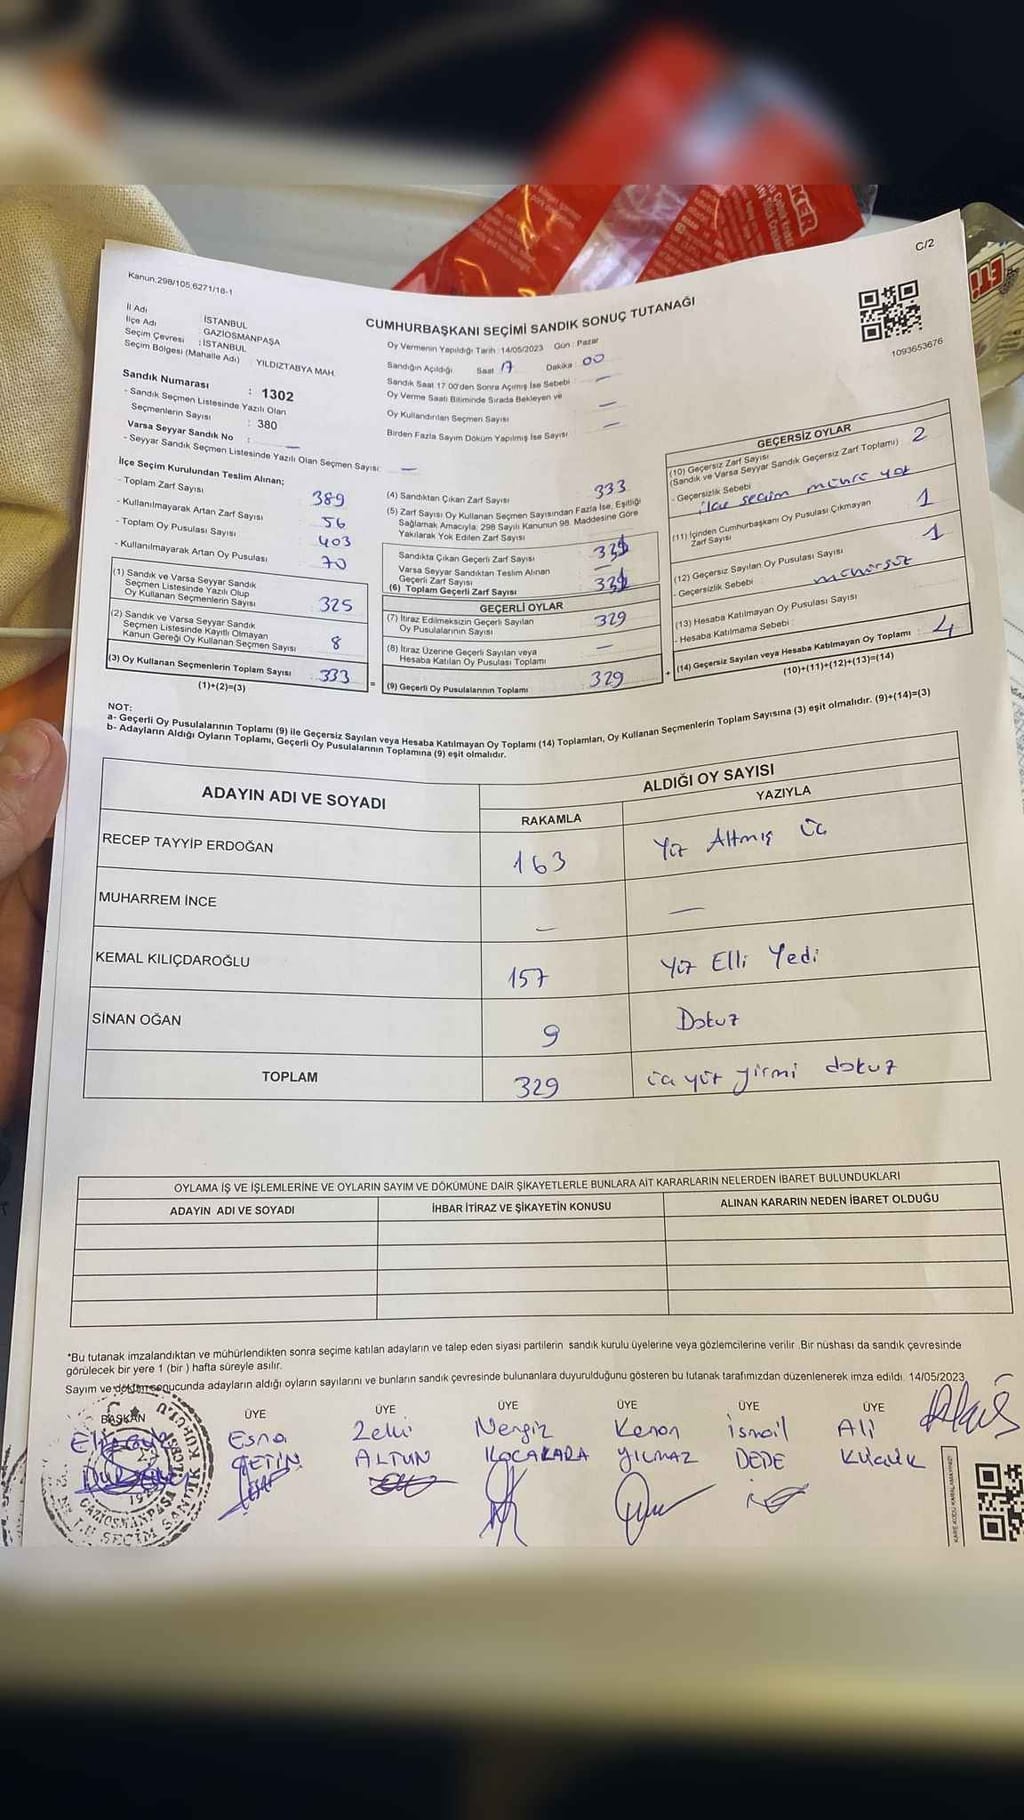 C/2
Kanun.298/105,6271/16-1
CUMHURBAŞKANI SEÇİMİ SANDIK SONUÇ TUTANAĞI
1093653676
İl Adı İSTANBUL
İlçe Adı GAZİOSMANPAŞA
Seçim Çevresi : İSTANBUL
Seçim Bölgesi (Mahalle Adı) YILDIZTABYA MAH.
Sandık Numarası : 1302
- Sandık Seçmen Listesinde Yazılı Olan
Seçmenlerin Sayısı : 380
Varsa Seyyar Sandık No : —
- Seyyar Sandık Seçmen Listesinde Yazılı Olan Seçmen Sayısı —
Oy Vermenin Yapıldığı Tarih : 14/05/2023 Gün : Pazar
Sandığın Açıldığı Saat 17 Dakika : 00
Sandık Saat 17 00'den Sonra Açımış İse Sebebi : —
Oy Verme Saati Bitiminde Sırada Bekleyen ve
Oy Kullandırılan Seçmen Sayısı —
Birden Fazla Sayım Döküm Yapılmış İse Sayısı —
İlçe Seçim Kurulundan Teslim Alınan;
- Toplam Zarf Sayısı 389
- Kullanılmayarak Artan Zarf Sayısı 56
- Toplam Oy Pusulası Sayısı 403
- Kullanılmayarak Artan Oy Pusulası 70
(1) Sandık ve Varsa Seyyar Sandık
Seçmen Listesinde Yazılı Olup
Oy Kullanan Seçmenlerin Sayısı 325
(2) Sandık ve Varsa Seyyar Sandık
Seçmen Listesinde Kayıtlı Olmayan
Kanun Gereği Oy Kullanan Seçmen Sayısı 8
(3) Oy Kullanan Seçmenlerin Toplam Sayısı 333
(1)+(2)=(3)
(4) Sandıktan Çıkan Zarf Sayısı 333
(5) Zarf Sayısı Oy Kullanan Seçmen Sayısından Fazla İse, Eşitliği
Sağlamak Amacıyla; 298 Sayılı Kanunun 98. Maddesine Göre
Yakılarak Yok Edilen Zarf Sayısı —
Sandıkta Çıkan Geçerli Zarf Sayısı
Varsa Seyyar Sandıktan Teslim Alınan
Geçerli Zarf Sayısı —
(6) Toplam Geçerli Zarf Sayısı
GEÇERLİ OYLAR
(7) İtiraz Edilmeksizin Geçerli Sayılan
Oy Pusulalarının Sayısı 329
(8) İtiraz Üzerine Geçerli Sayılan veya
Hesaba Katılan Oy Pusulası Toplamı —
= (9) Geçerli Oy Pusulalarının Toplamı 329 +
GEÇERSİZ OYLAR
(10) Geçersiz Zarf Sayısı
(Sandık ve Varsa Seyyar Sandık Geçersiz Zarf Toplamı) 2
- Geçersizlik Sebebi ilçe seçim mührü yok
(11) İçinden Cumhurbaşkanı Oy Pusulası Çıkmayan
Zarf Sayısı 1
(12) Geçersiz Sayılan Oy Pusulası Sayısı 1
- Geçersizlik Sebebi mühürsüz
(13) Hesaba Katılmayan Oy Pusulası Sayısı
- Hesaba Katılmama Sebebi :
(14) Geçersiz Sayılan veya Hesaba Katılmayan Oy Toplamı : 4
(10)+(11)+(12)+(13)=(14)
NOT:
a- Geçerli Oy Pusulalarının Toplamı (9) ile Geçersiz Sayılan veya Hesaba Katılmayan Oy Toplamı (14) Toplamları, Oy Kullanan Seçmenlerin Toplam Sayısına (3) eşit olmalıdır. (9)+(14)=(3)
b- Adayların Aldığı Oyların Toplamı, Geçerli Oy Pusulalarının Toplamına (9) eşit olmalıdır.
ADAYIN ADI VE SOYADI ALDIĞI OY SAYISI
RAKAMLA YAZIYLA
RECEP TAYYİP ERDOĞAN 163 Yüz Altmış Üç
MUHARREM İNCE — —
KEMAL KILIÇDAROĞLU 157 Yüz Elli Yedi
SİNAN OĞAN 9 Dokuz
TOPLAM 329 üç yüz yirmi dokuz
OYLAMA İŞ VE İŞLEMLERİNE VE OYLARIN SAYIM VE DÖKÜMÜNE DAİR ŞİKAYETLERLE BUNLARA AİT KARARLARIN NELERDEN İBARET BULUNDUKLARI
ADAYIN ADI VE SOYADI İHBAR İTİRAZ VE ŞİKAYETİN KONUSU ALINAN KARARIN NEDEN İBARET OLDUĞU
*Bu tutanak imzalandıktan ve mühürlendikten sonra seçime katılan adayların ve talep eden siyasi partilerin sandık kurulu üyelerine veya gözlemcilerine verilir. Bir nüshası da sandık çevresinde
görülecek bir yere 1 (bir ) hafta süreyle asılır.
Sayım ve döküm sonucunda adayların aldığı oyların sayılarını ve bunların sandık çevresinde bulunanlara duyurulduğunu gösteren bu tutanak tarafımızdan düzenlenerek imza edildi. 14/05/2023
BAŞKAN ÜYE ÜYE ÜYE ÜYE ÜYE ÜYE
Esna Zeki Nergiz Kenan İsmail Ali
ÇETİN ALTUN KOCAKARA YILMAZ DEDE Küçük
ETİ